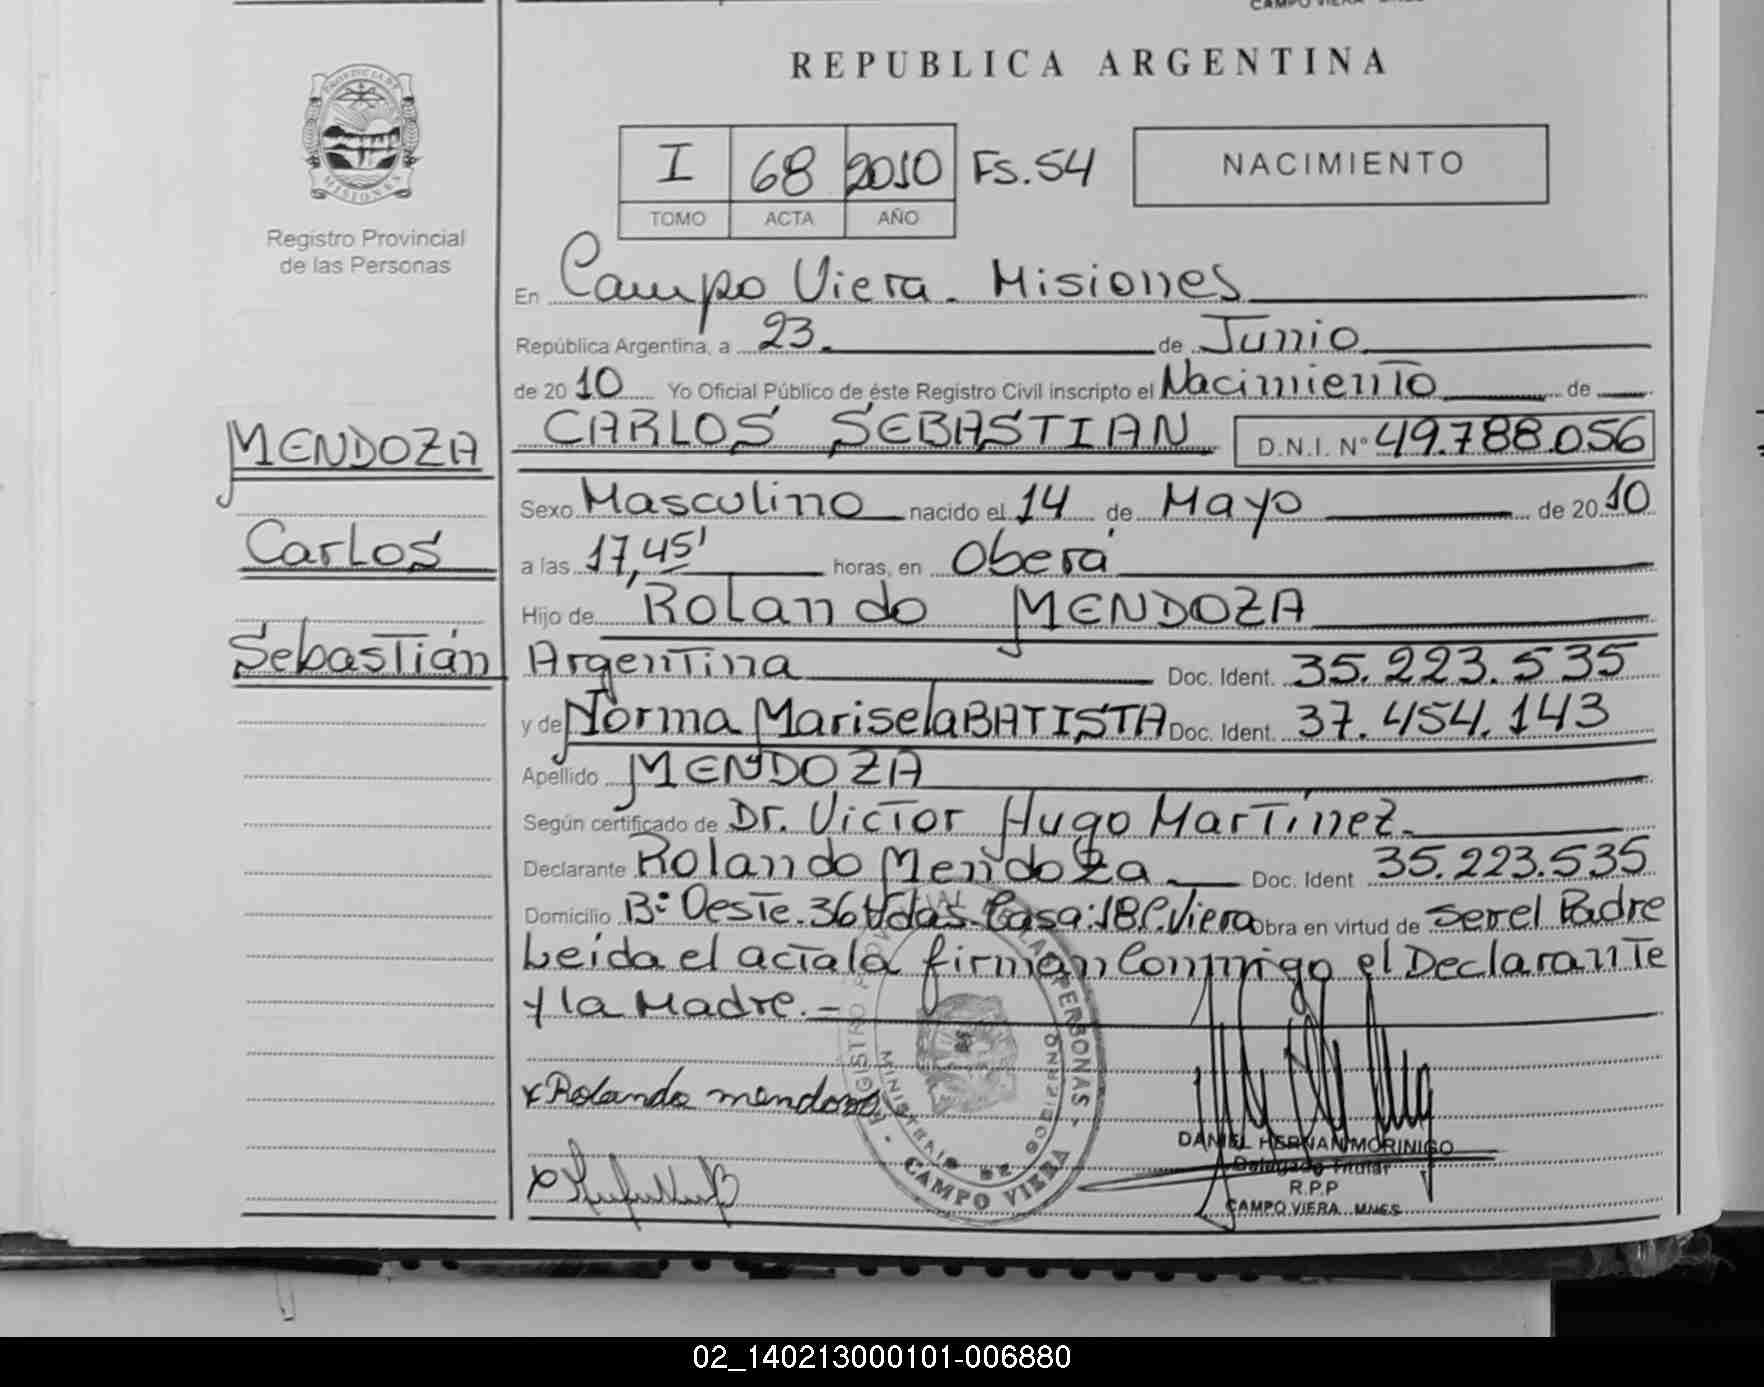 REPUBLICA ARGENTINA
PROVINCIA DE
MISIONES
Registro Provincial
de las Personas
I 68 2010 Fs. 54
TOMO ACTA AÑO
NACIMIENTO
En Campo Viera. Misiones
República Argentina, a 23. de Junio
de 2010 Yo Oficial Público de éste Registro Civil inscripto el Nacimiento de
MENDOZA
Carlos
Sebastián
CARLOS SEBASTIAN D.N.I. Nº 49.788.056
Sexo Masculino nacido el 14 de Mayo de 2010
a las 17,45' horas, en Oberá
Hijo de Rolando MENDOZA
Argentina Doc. Ident. 35.223.535
y de Norma Marisela BATISTA Doc. Ident. 37.454.143
Apellido MENDOZA
Según certificado de Dr. Victor Hugo Martínez.
Declarante Rolando Mendoza Doc. Ident 35.223.535
Domicilio Bº Oeste. 36 Vdas. Casa: 18 C. Viera Obra en virtud de Ser el Padre
Leída el acta la firman Conmigo el Declarante
y la Madre. -
x Rolando mendoza
REGISTRO PROVINCIAL DE LAS PERSONAS
MINISTERIO DE GOBIERNO
CAMPO VIERA
DANIEL HERNAN MORINIGO
Delegado Titular
R.P.P
CAMPO VIERA - MNES.
02_140213000101-006880